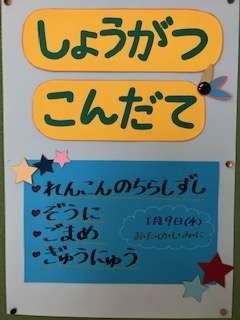 しょうがつ
こんだて
れんこんのちらしずし
ぞうに
ごまめ
ぎゅうにゅう
1月9日(水)
おたのしみに